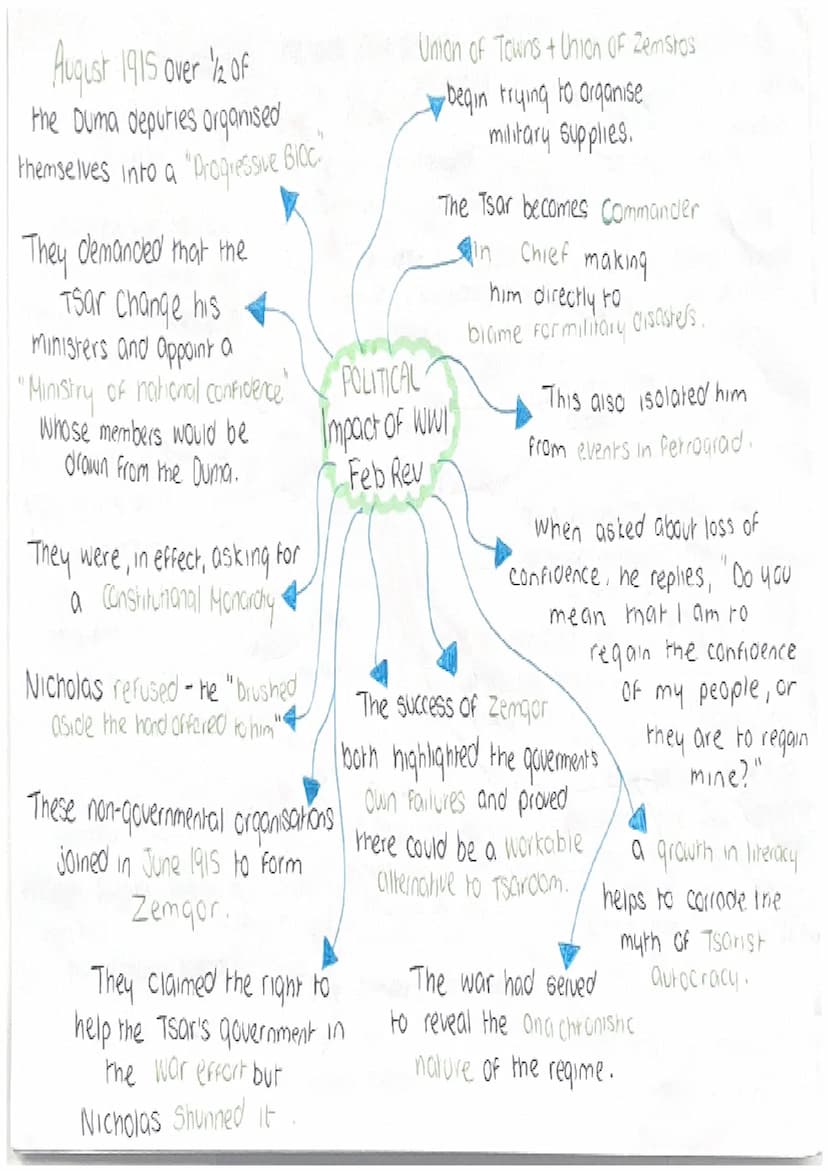 POLITICAL
Impact OF WW1
Feb Rev
Union of Towns + Union OF Zemstos
begin trying to organise
military supplies.
The Tsar becomes Commander
in Chief making
him directly to
blame for military disasters.
This also isolated him
from events in Petrograd.
When asked about loss of
confidence, he replies, "Do you
mean that I am to
regain the confidence
OF my people, or
they are to regain
mine?"
a growth in literacy
helps to corrode the
myth OF Tsarist
autocracy.
The war had served
to reveal the anachronistic
nature of the regime.
The success of Zemgor
both highlighted the goverments
own failures and proved
there could be a workable
alternative to Tsardom.
They claimed the right to
help the Tsar's government in
the war effort but
Nicholas shunned it.
These non-governmental organisations
joined in June 1915 to form
Zemgor.
Nicholas refused - he "brushed
aside the hand offered to him"
They were, in effect, asking for
a Constitutional Monarchy
They demanded that the
Tsar change his
ministers and appoint a
"Ministry of national confidence"
whose members would be
drawn from the Duma.
August 1915 over 1/2 of
the Duma deputies organised
themselves into a "Progressive Bloc."